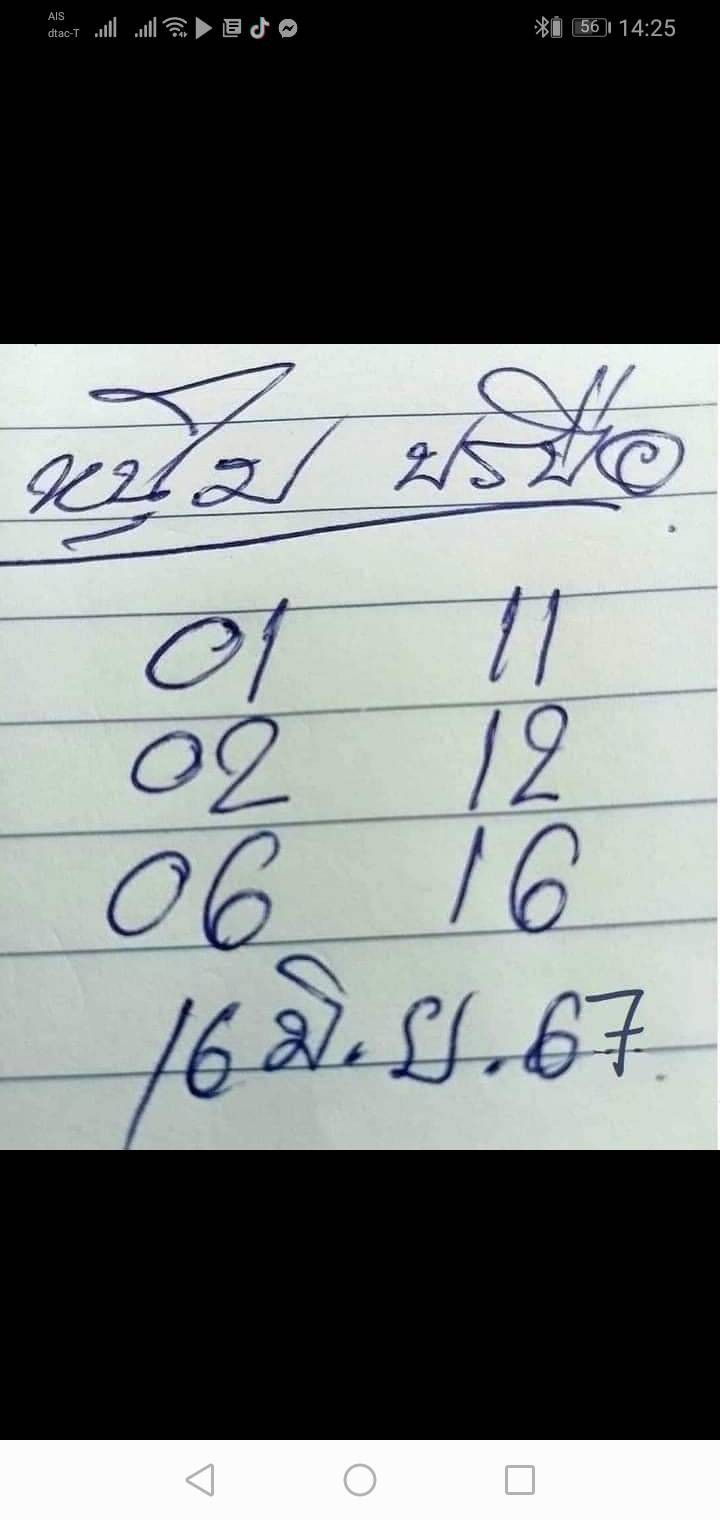 AIS
dtac-T
56 14:25
01 11
02 12
06 16
16 มิ.ย.67